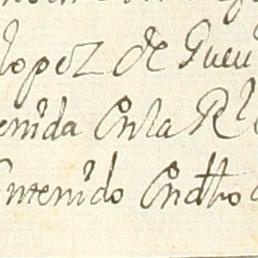 lopez de Gueu
enida en la Rl
ontenido En dho